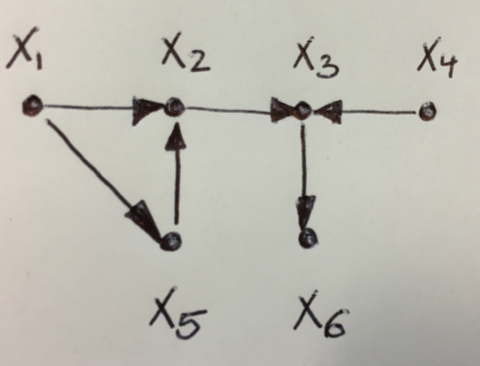 X1 X2 X3 X4
X5 X6